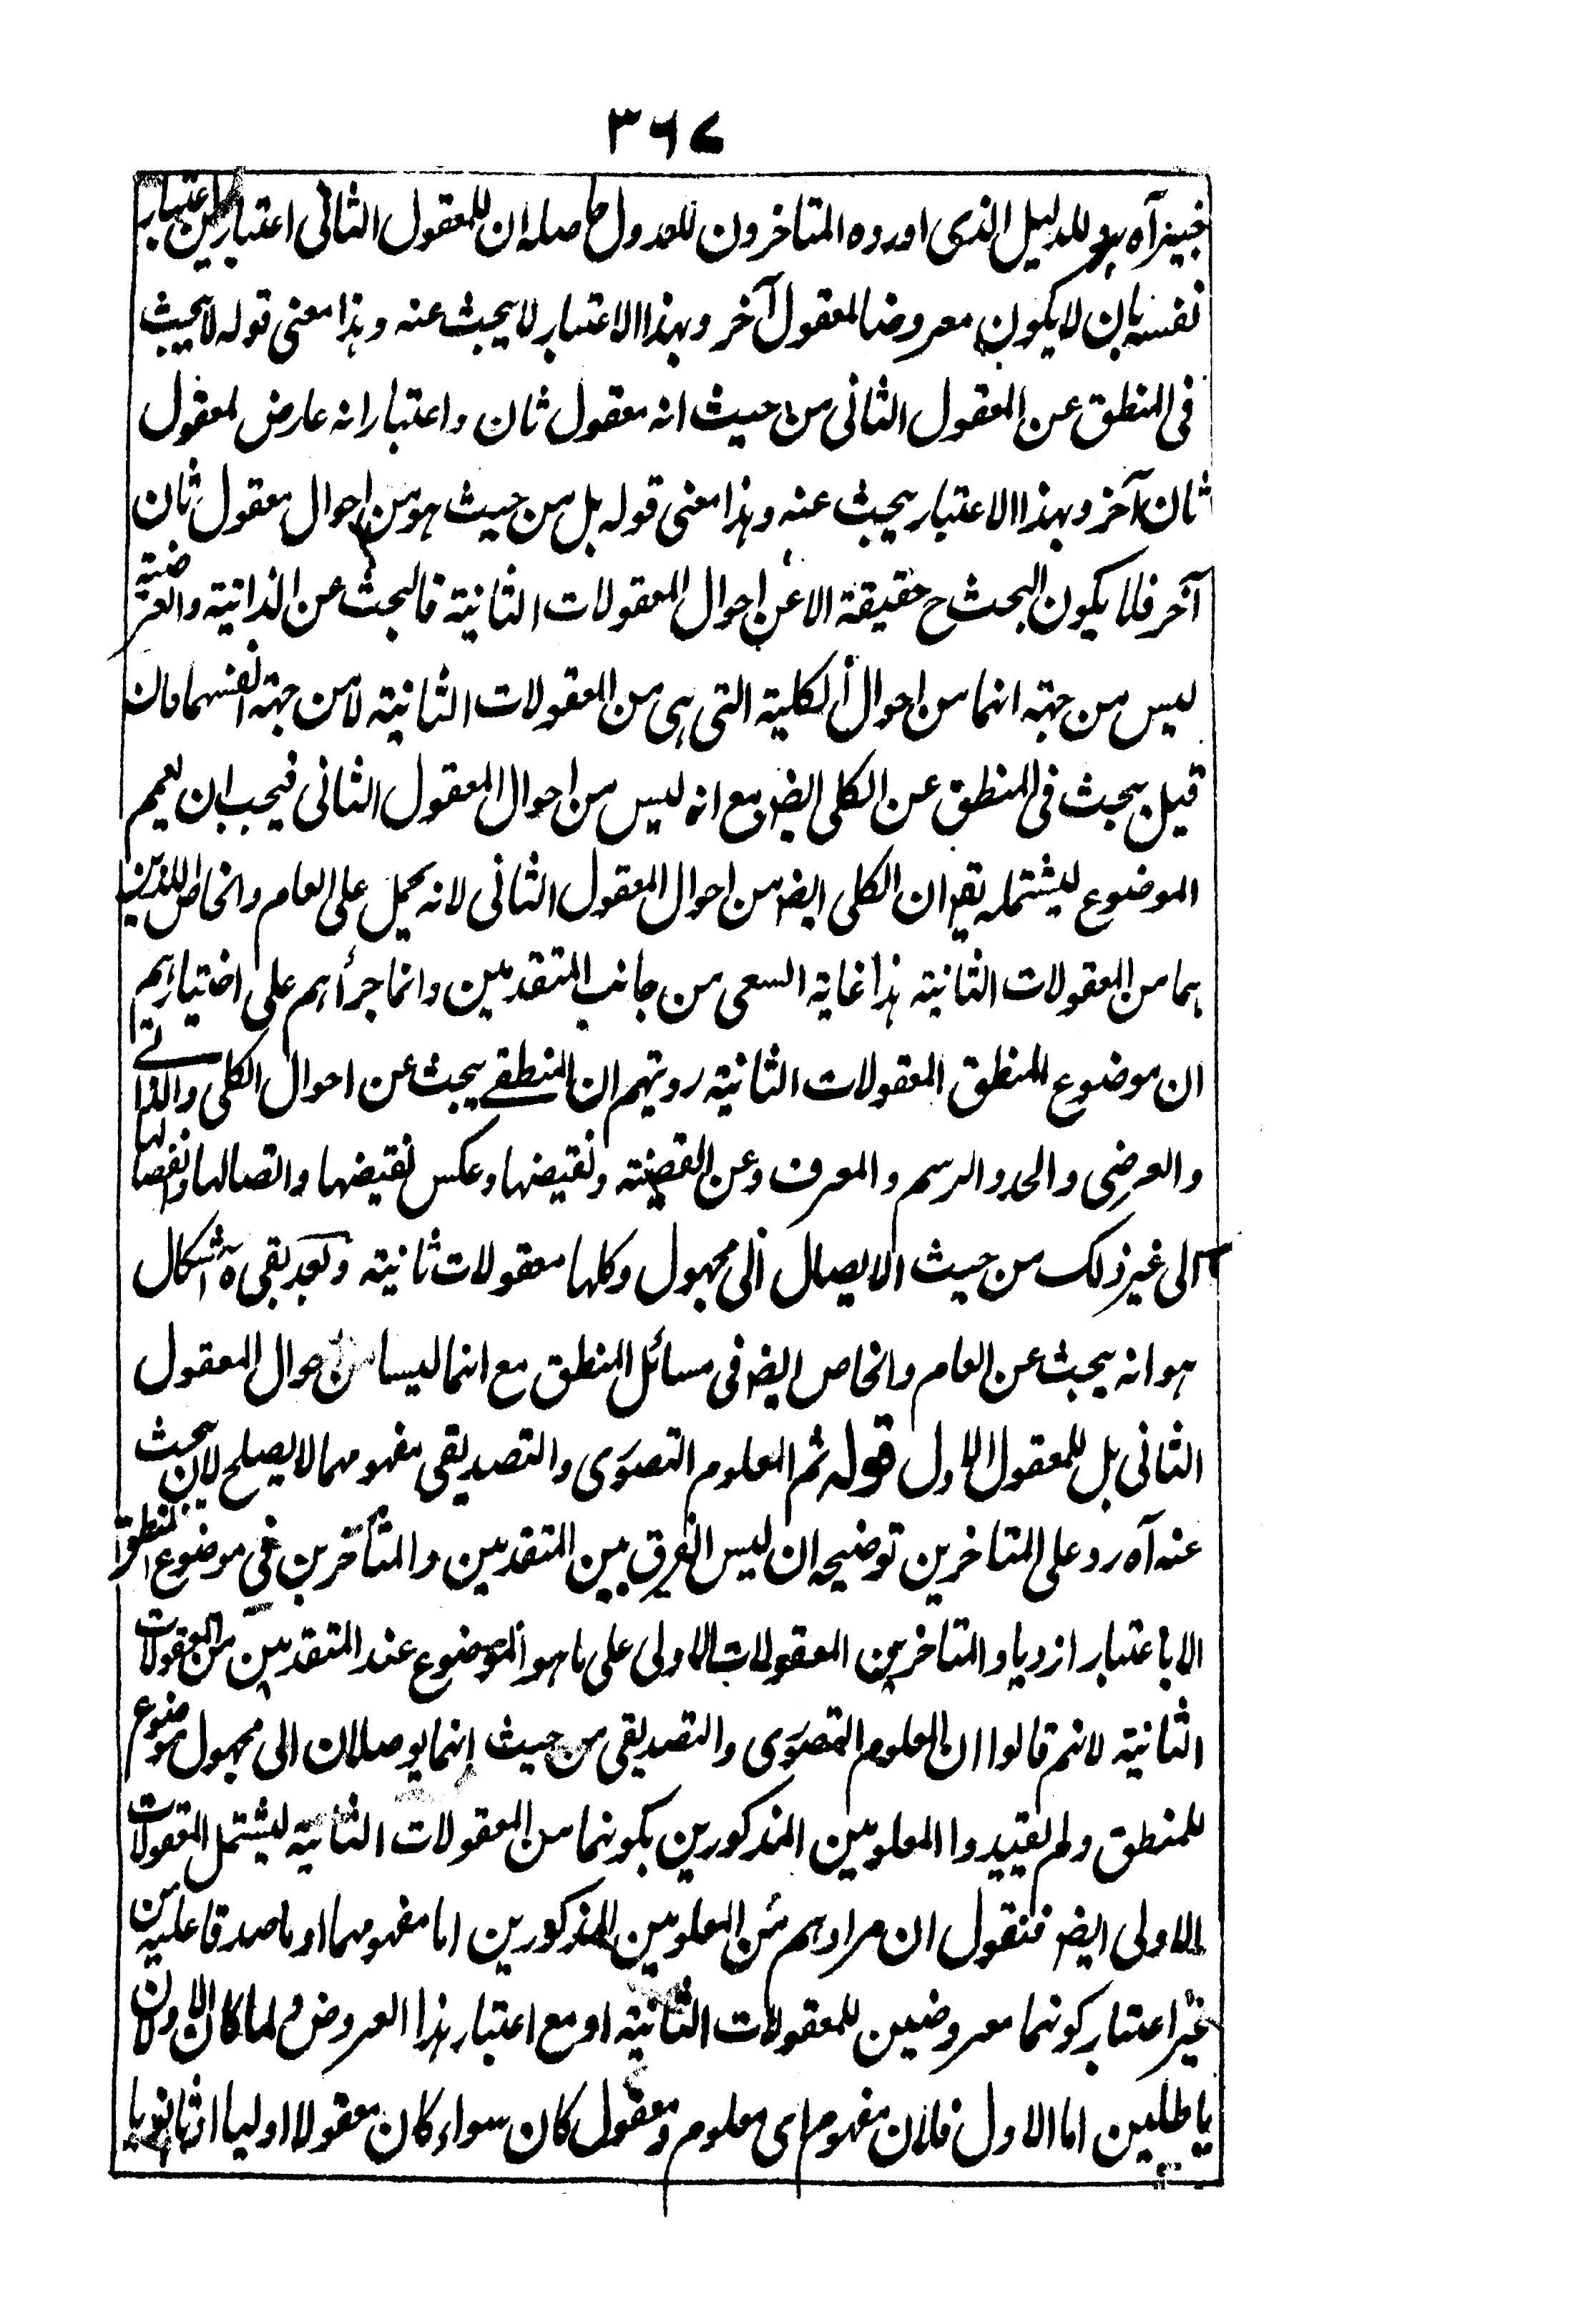 ۳۶۷
خبير آه رد للدليل الذى اورده المتاخرون للعدول حاصله ان للمعقول الثانى اعتبارين اعتبار
نفسه بان لا يكون معروضا لمعقول آخر وبهذا الاعتبار لا يبحث عنه وهذا معنى قوله لا يبحث
فى المنطق عن المعقول الثانى من حيث انه معقول ثان واعتبار انه عارض لمعقول
ثان آخر وبهذا الاعتبار يبحث عنه وهذا معنى قوله بل من حيث هو من احوال معقول ثان
آخر فلا يكون البحث ح حقيقة الا عن احوال المعقولات الثانية فالبحث عن الذاتية والعرضية
ليس من جهة انهما من احوال الكلية التى هى من المعقولات الثانية لا من جهة انفسهما فان
قيل يبحث فى المنطق عن الكلى ايضا مع انه ليس من احوال المعقول الثانى فيجب ان يعمم
الموضوع ليشتمله يقر ان الكلى ايضا من احوال المعقول الثانى لانه يحمل على العام والخاص اللذين
هما من المعقولات الثانية هذا غاية السعى من جانب المتقدمين وانما جرأهم على اختيارهم
ان موضوع المنطق المعقولات الثانية رويتهم ان المنطقے يبحث عن احوال الكلى والذاتے
والعرضى والحد والرسم والمعرف وعن القضية ونقيضها وعكس نقيضها واتصالها وانفصالها
الى غير ذلك من حيث الايصال الى مجهول وكلها معقولات ثانية وبعد بقى ه اشكال
هو انه يبحث عن العام والخاص ايضا فى مسائل المنطق مع انهما ليسا من احوال المعقول
الثانى بل للمعقول الاول قوله ثم المعلوم التصورى والتصديقى مفهومهما لا يصلح لان يبحث
عنه آه رد على المتاخرين توضيحه ان ليس الفرق بين المتقدمين والمتأخرين فى موضوع المنطق
الا باعتبار ازدياد المتاخرين المعقولات الاولى على ما هو الموضوع عند المتقدمين من المعقولات
الثانية لانهم قالوا ان المعلوم التصورى والتصديقى من حيث انهما يوصلان الى مجهول موضوع
للمنطق ولم يقيدوا المعلومين المذكورين بكونهما من المعقولات الثانية ليشتمل المعقولات
الاولى ايضا فنقول ان مرادهم من المعلومين المذكورين اما مفهومهما او ما صدقا عليه من
غير اعتبار كونهما معروضين للمعقولات الثانية او مع اعتبار هذا العروض ولما كان الاولان
باطلين اما الاول فلان مفهوم اى معلوم ومعقول كان سواء كان معقولا اوليا او ثانويا